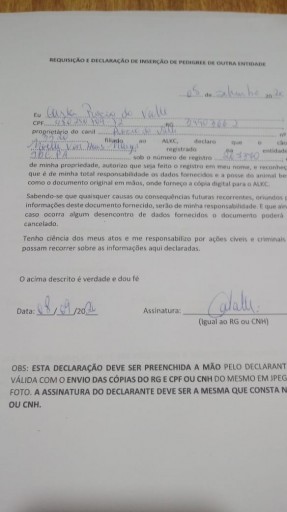 REQUISIÇÃO E DECLARAÇÃO DE INSERÇÃO DE PEDIGREE DE OUTRA ENTIDADE
de Setembro de
Eu Carla
CPF RG
proprietário do canil nº
filiado ao ALKC, declaro que o cão
registrado na entidade
sob o número de registro
de minha propriedade, autorizo que seja feito o registro em meu nome, e reconheç
que é de minha total responsabilidade os dados fornecidos e a posse do animal be
como o documento original em mãos, onde forneço a cópia digital para o ALKC.
Sabendo-se que quaisquer causas ou consequências futuras recorrentes, oriundos
informações deste documento fornecido, serão de minha responsabilidade. E que ain
caso ocorra algum desencontro de dados fornecidos o documento poderá
cancelado.
Tenho ciência dos meus atos e me responsabilizo por ações civeis e criminais
possam recorrer sobre as informações aqui declaradas.
O acima descrito é verdade e dou fé
Data: 08/09/20 Assinatura:
(Igual ao RG ou CNH)
OBS: ESTA DECLARAÇÃO DEVE SER PREENCHIDA A MÃO PELO DECLARANT
VÁLIDA COM O ENVIO DAS CÓPIAS DO RG E CPF OU CNH DO MESMO EM JPEG
FOTO. A ASSINATURA DO DECLARANTE DEVE SER A MESMA QUE CONSTA N
OU CNH.